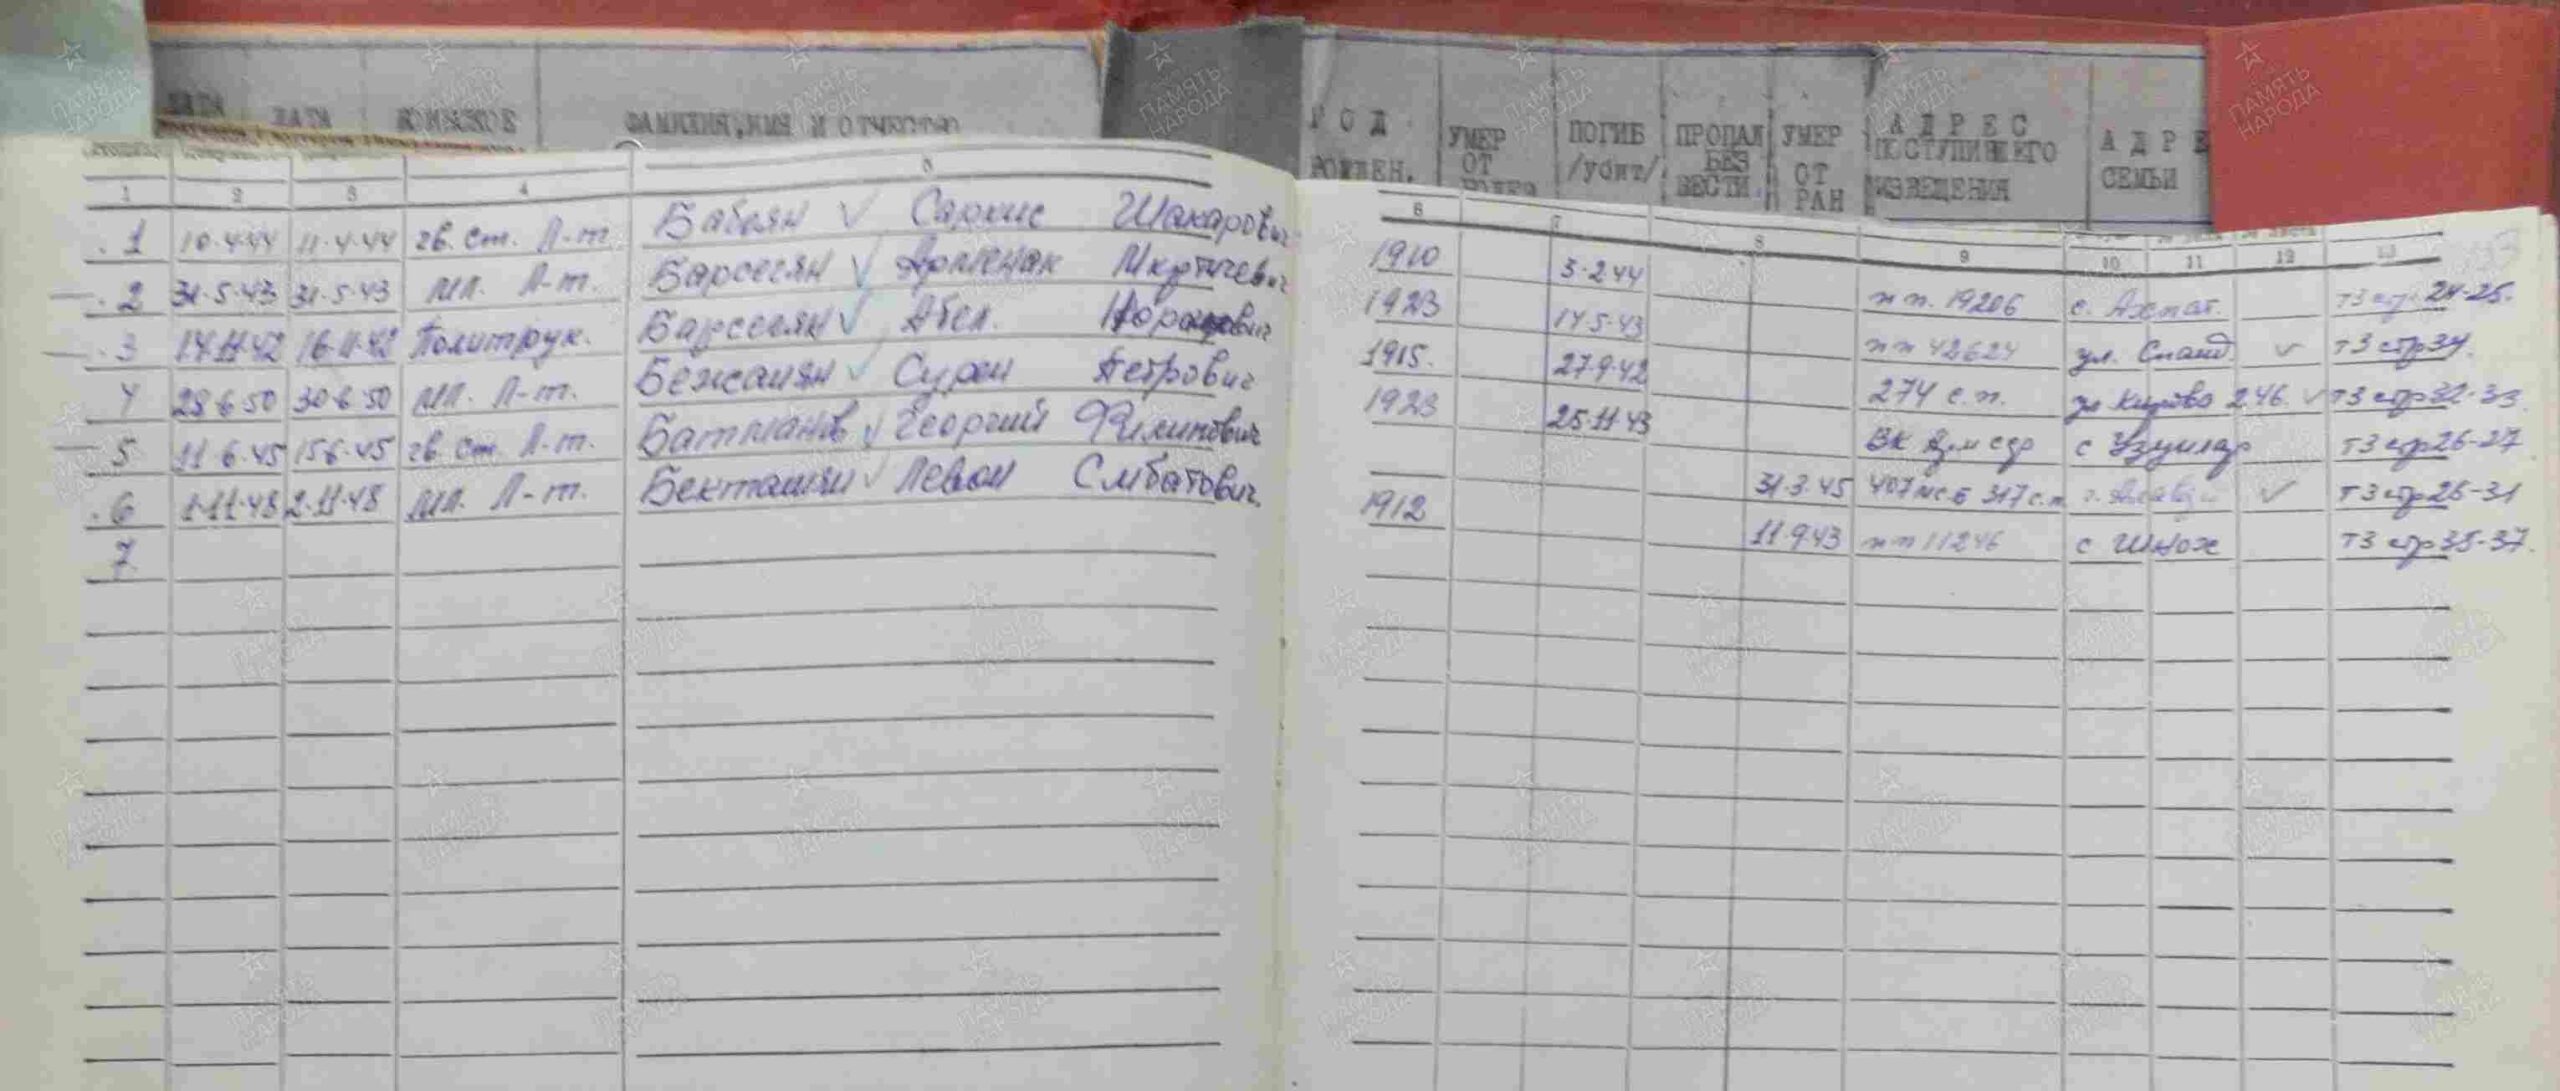 ДАТА ДАТА ВОИНСКОЕ ФАМИЛИЯ, ИМЯ И ОТЧЕСТВО
ГОД РОЖДЕН. УМЕР ОТ ПОГИБ /убит/ ПРОПАЛ БЕЗ ВЕСТИ УМЕР ОТ РАН АДРЕС ПОСТУПИВШЕГО ИЗВЕЩЕНИЯ АДРЕ СЕМЬИ
1 2 3 4 5 6 7 8 9 10 11 12 13
1 10.4.44 11.4.44 гв. ст. Л-т Бабаян Саркис Шакарович 1910 3.2.44 пп. 19206 с. Ахпат. т3 стр. 24-25.
2 31.5.43 31.5.43 мл. Л-т. Барсегян Арменак Мкртичевич 1923 14.5.43 пп 42624 ул. Спанд. т3 стр 34.
3 14.11.42 16.11.42 Политрук. Барсегян Абел. 1915. 27.9.42 274 с.п. ул Кирова 246. т3 стр 32-33.
4 28.6.50 30.6.50 мл. Л-т. Бежанян Сурен Петрович 1923 25.11.43 ВК с Узунлар т3 стр 26-27
5 11.6.45 15.6.45 гв. ст. Л-т. Батманов Георгий Филипович 31.3.45 317 с.п. т3 стр 28-31
6 1.11.48 2.11.48 мл. Л-т. Бекташян Левон Смбатович 1912 11.9.43 пп 11246 с Шнох т3 стр 35-37.
7
ПАМЯТЬ НАРОДА